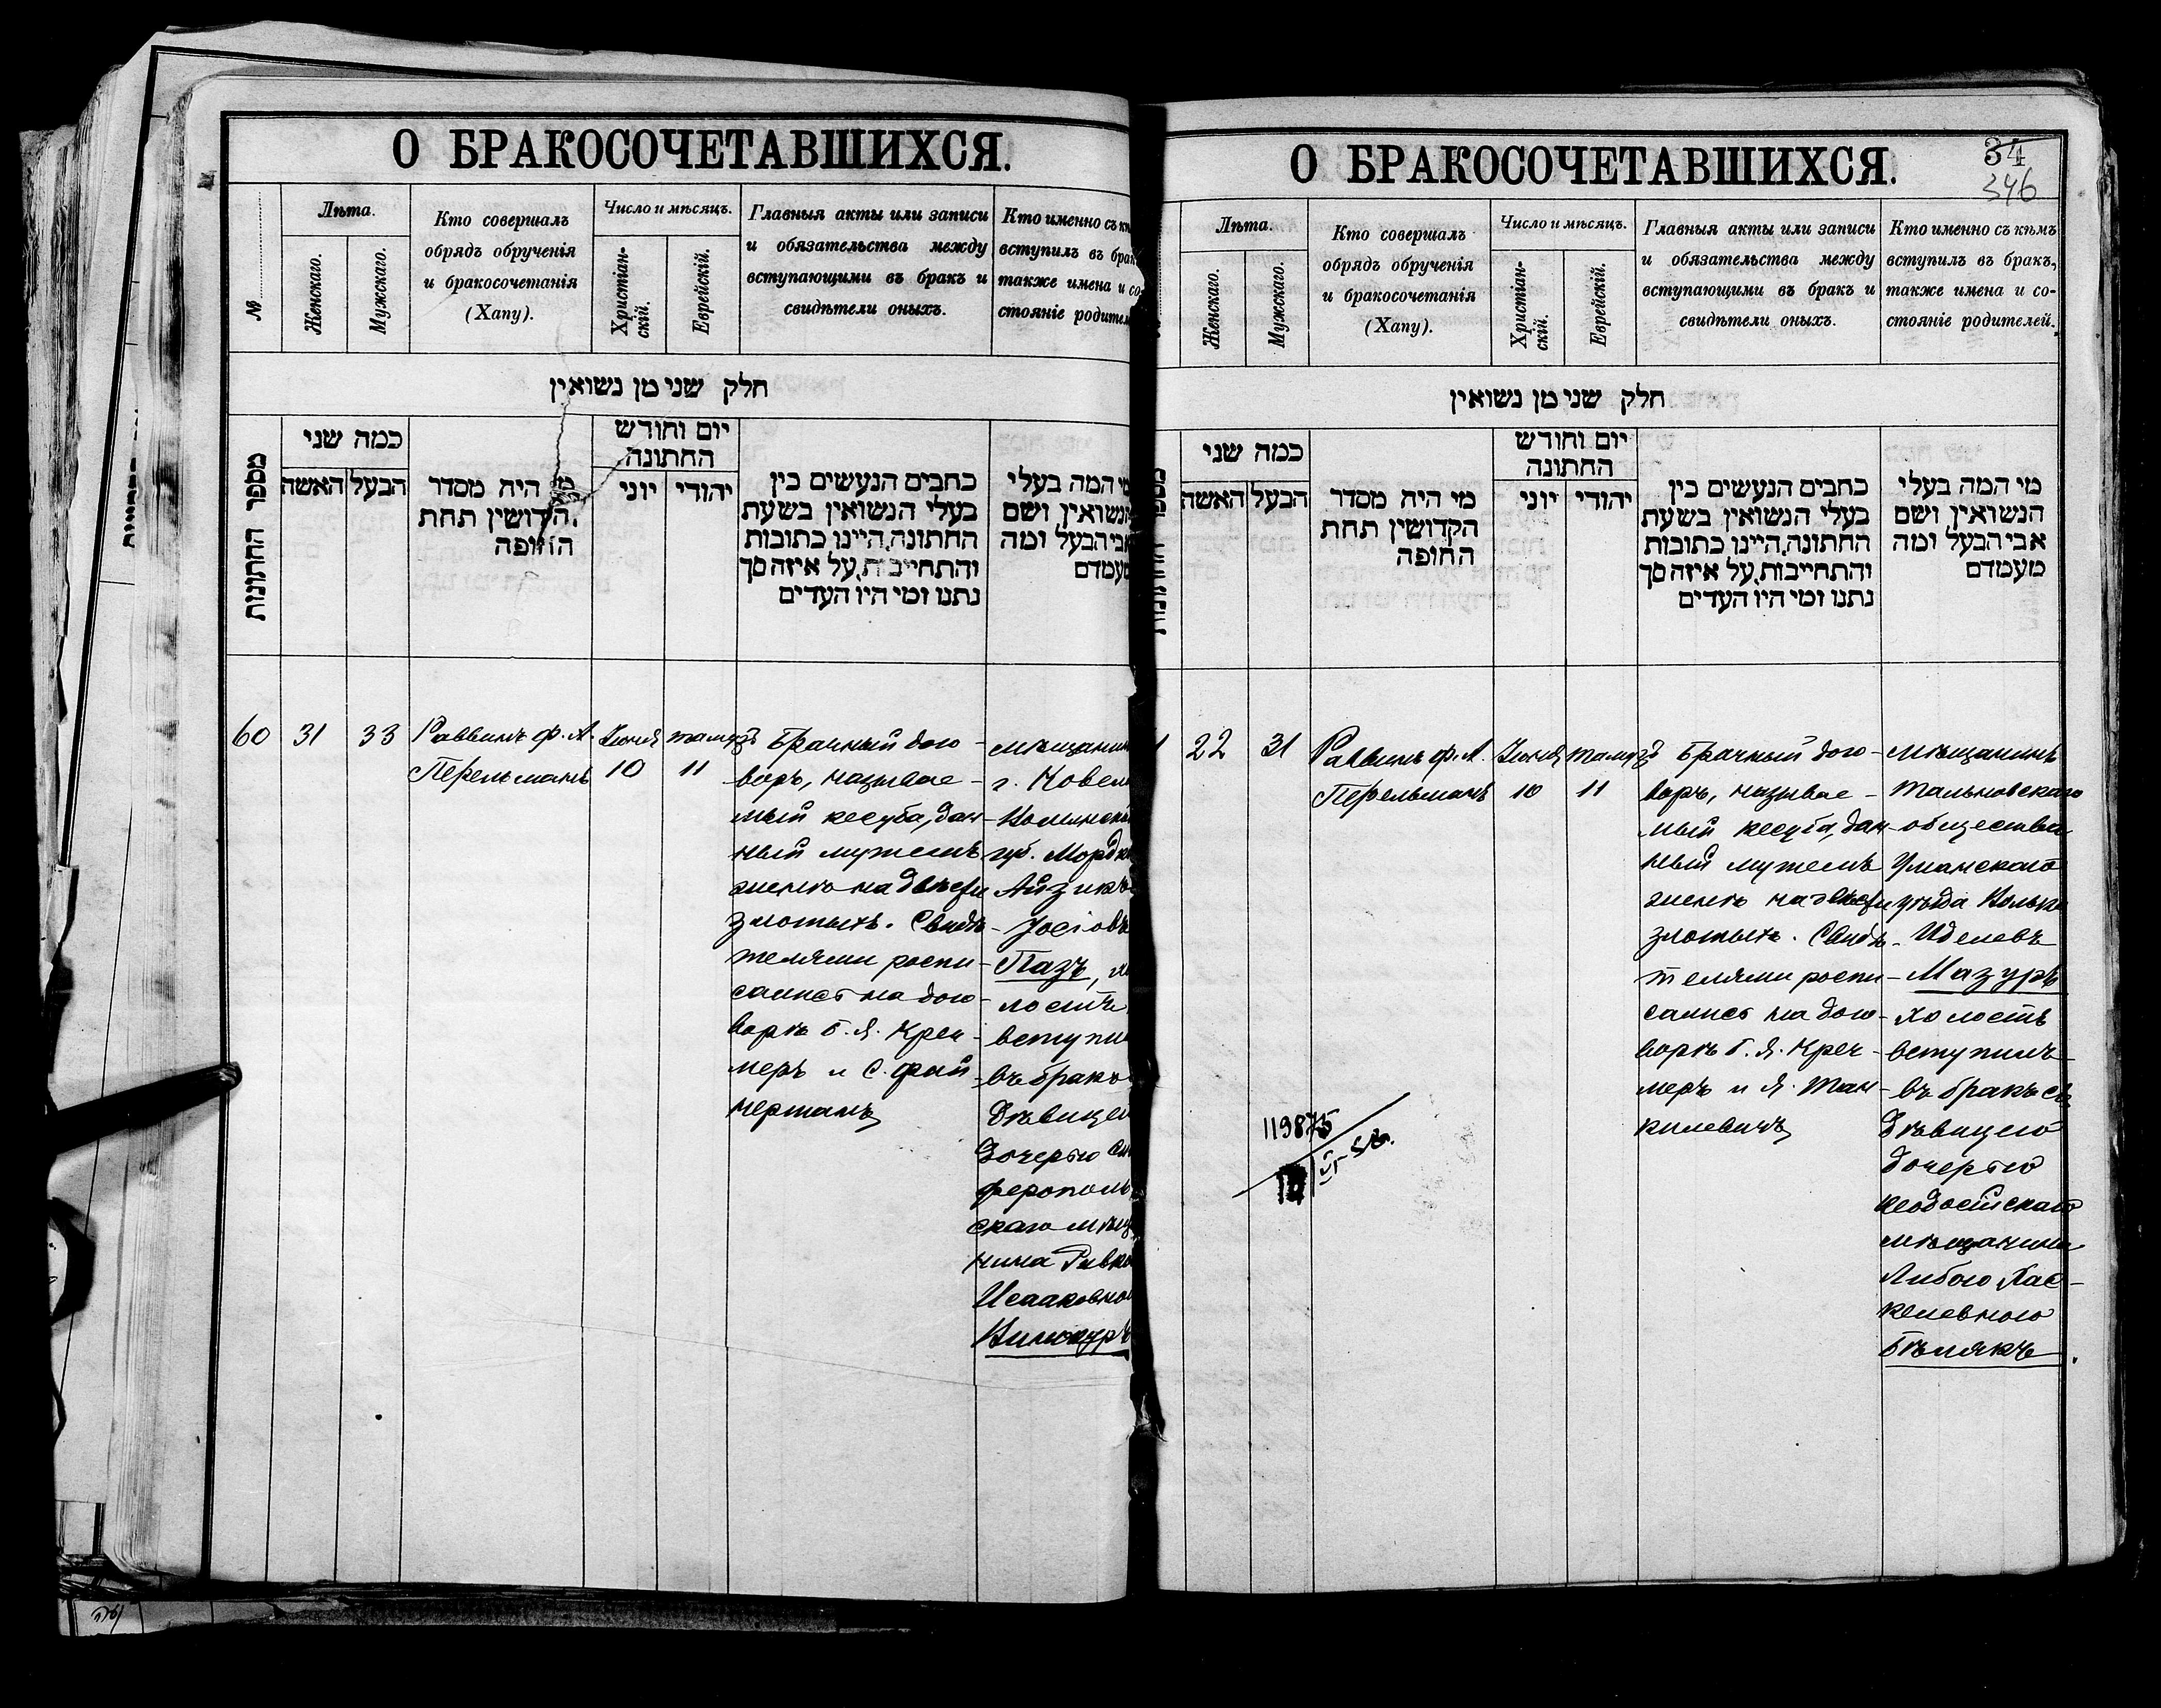 О БРАКОСОЧЕТАВШИХСЯ.
№
Лѣта.
Женскаго.
Мужскаго.
Кто совершалъ
обрядъ обрученія
и бракосочетанія
(Хапу).
Число и мѣсяцъ.
Христіан-
скій.
Еврейскій.
Главныя акты или записи
и обязательства между
вступающими въ бракъ и
свидѣтели оныхъ.
Кто именно съ
вступилъ въ
также имена и со-
стояніе
חלק שני מן נשואין
מספר החתונות
כמה שני
האשה
הבעל
מי היה מסדר
הקדושין תחת
החופה
יום וחודש
החתונה
יוני
יהודי
כתבים הנעשים בין
בעלי הנשואין בשעת
החתונה, היינו כתובות
והתחייבות, על איזה סך
נתנו ומי היו העדים
מי המה בעלי
הנשואין ושם
אבי הבעל ומה
מעמדם
60
31
33
Раввинъ Ф. А.
Перельманъ
Іюня
10
тамузъ
11
Брачный дого-
воръ, называе-
мый кесуба, дан-
ный мужемъ
женѣ на двѣсти
злотыхъ. Свидѣ-
телями роспи-
сались на дого-
ворѣ Б. Я. Креч-
меръ и С. Фай-
нерманъ
г.
губ.
Айзикъ
Іосіовъ
Пазъ,
въ бракъ
дочерью
скаго
нина
Винокуръ
О БРАКОСОЧЕТАВШИХСЯ.
34
346
Лѣта.
Женскаго.
Мужскаго.
Кто совершалъ
обрядъ обрученія
и бракосочетанія
(Хапу).
Число и мѣсяцъ.
Христіан-
скій.
Еврейскій.
Главныя акты или записи
и обязательства между
вступающими въ бракъ и
свидѣтели оныхъ.
Кто именно съ кѣмъ
вступилъ въ бракъ,
также имена и со-
стояніе родителей.
חלק שני מן נשואין
כמה שני
האשה
הבעל
מי היה מסדר
הקדושין תחת
החופה
יום וחודש
החתונה
יוני
יהודי
כתבים הנעשים בין
בעלי הנשואין בשעת
החתונה, היינו כתובות
והתחייבות, על איזה סך
נתנו ומי היו העדים
מי המה בעלי
הנשואין ושם
אבי הבעל ומה
מעמדם
22
31
Раввинъ Ф. А.
Перельманъ
Іюня
10
тамузъ
11
Брачный дого-
воръ, называе-
мый кесуба, дан-
ный мужемъ
женѣ на двѣсти
злотыхъ. Свидѣ-
телями роспи-
сались на дого-
ворѣ Б. Я. Креч-
меръ и Я. Тан-
килевичъ
мѣщанинъ
Тальновскаго
общества
Уманскаго
уѣзда Волько
Иделевъ
Мазуръ
холостъ
вступилъ
въ бракъ съ
дѣвицею
дочерью
Ѳеодосійскаго
мѣщанина
Либою Хас-
келевною
Бѣлякъ.
119875